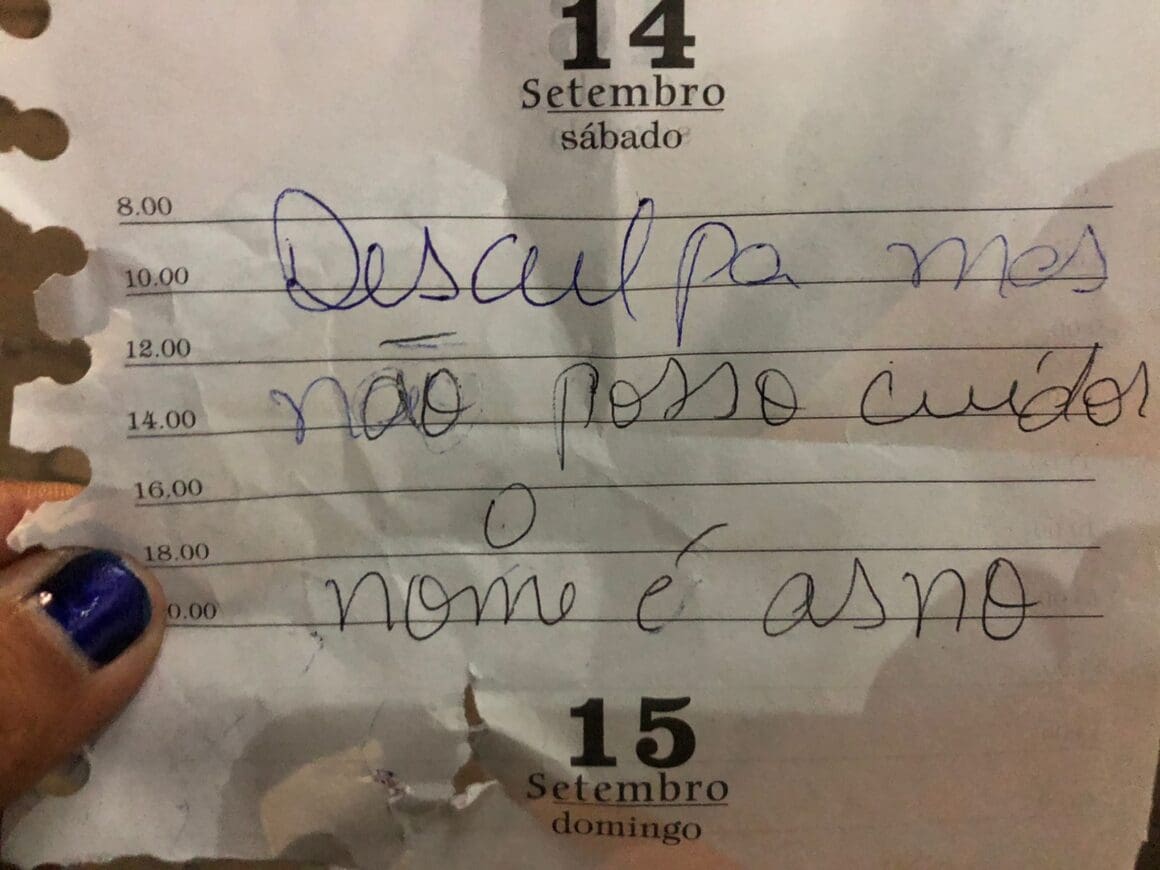 14
Setembro
sábado
8.00
Desculpa mas
10.00
12.00
não posso cuidar
14.00
16.00
O
18.00
nome é asno
0.00
15
Setembro
domingo